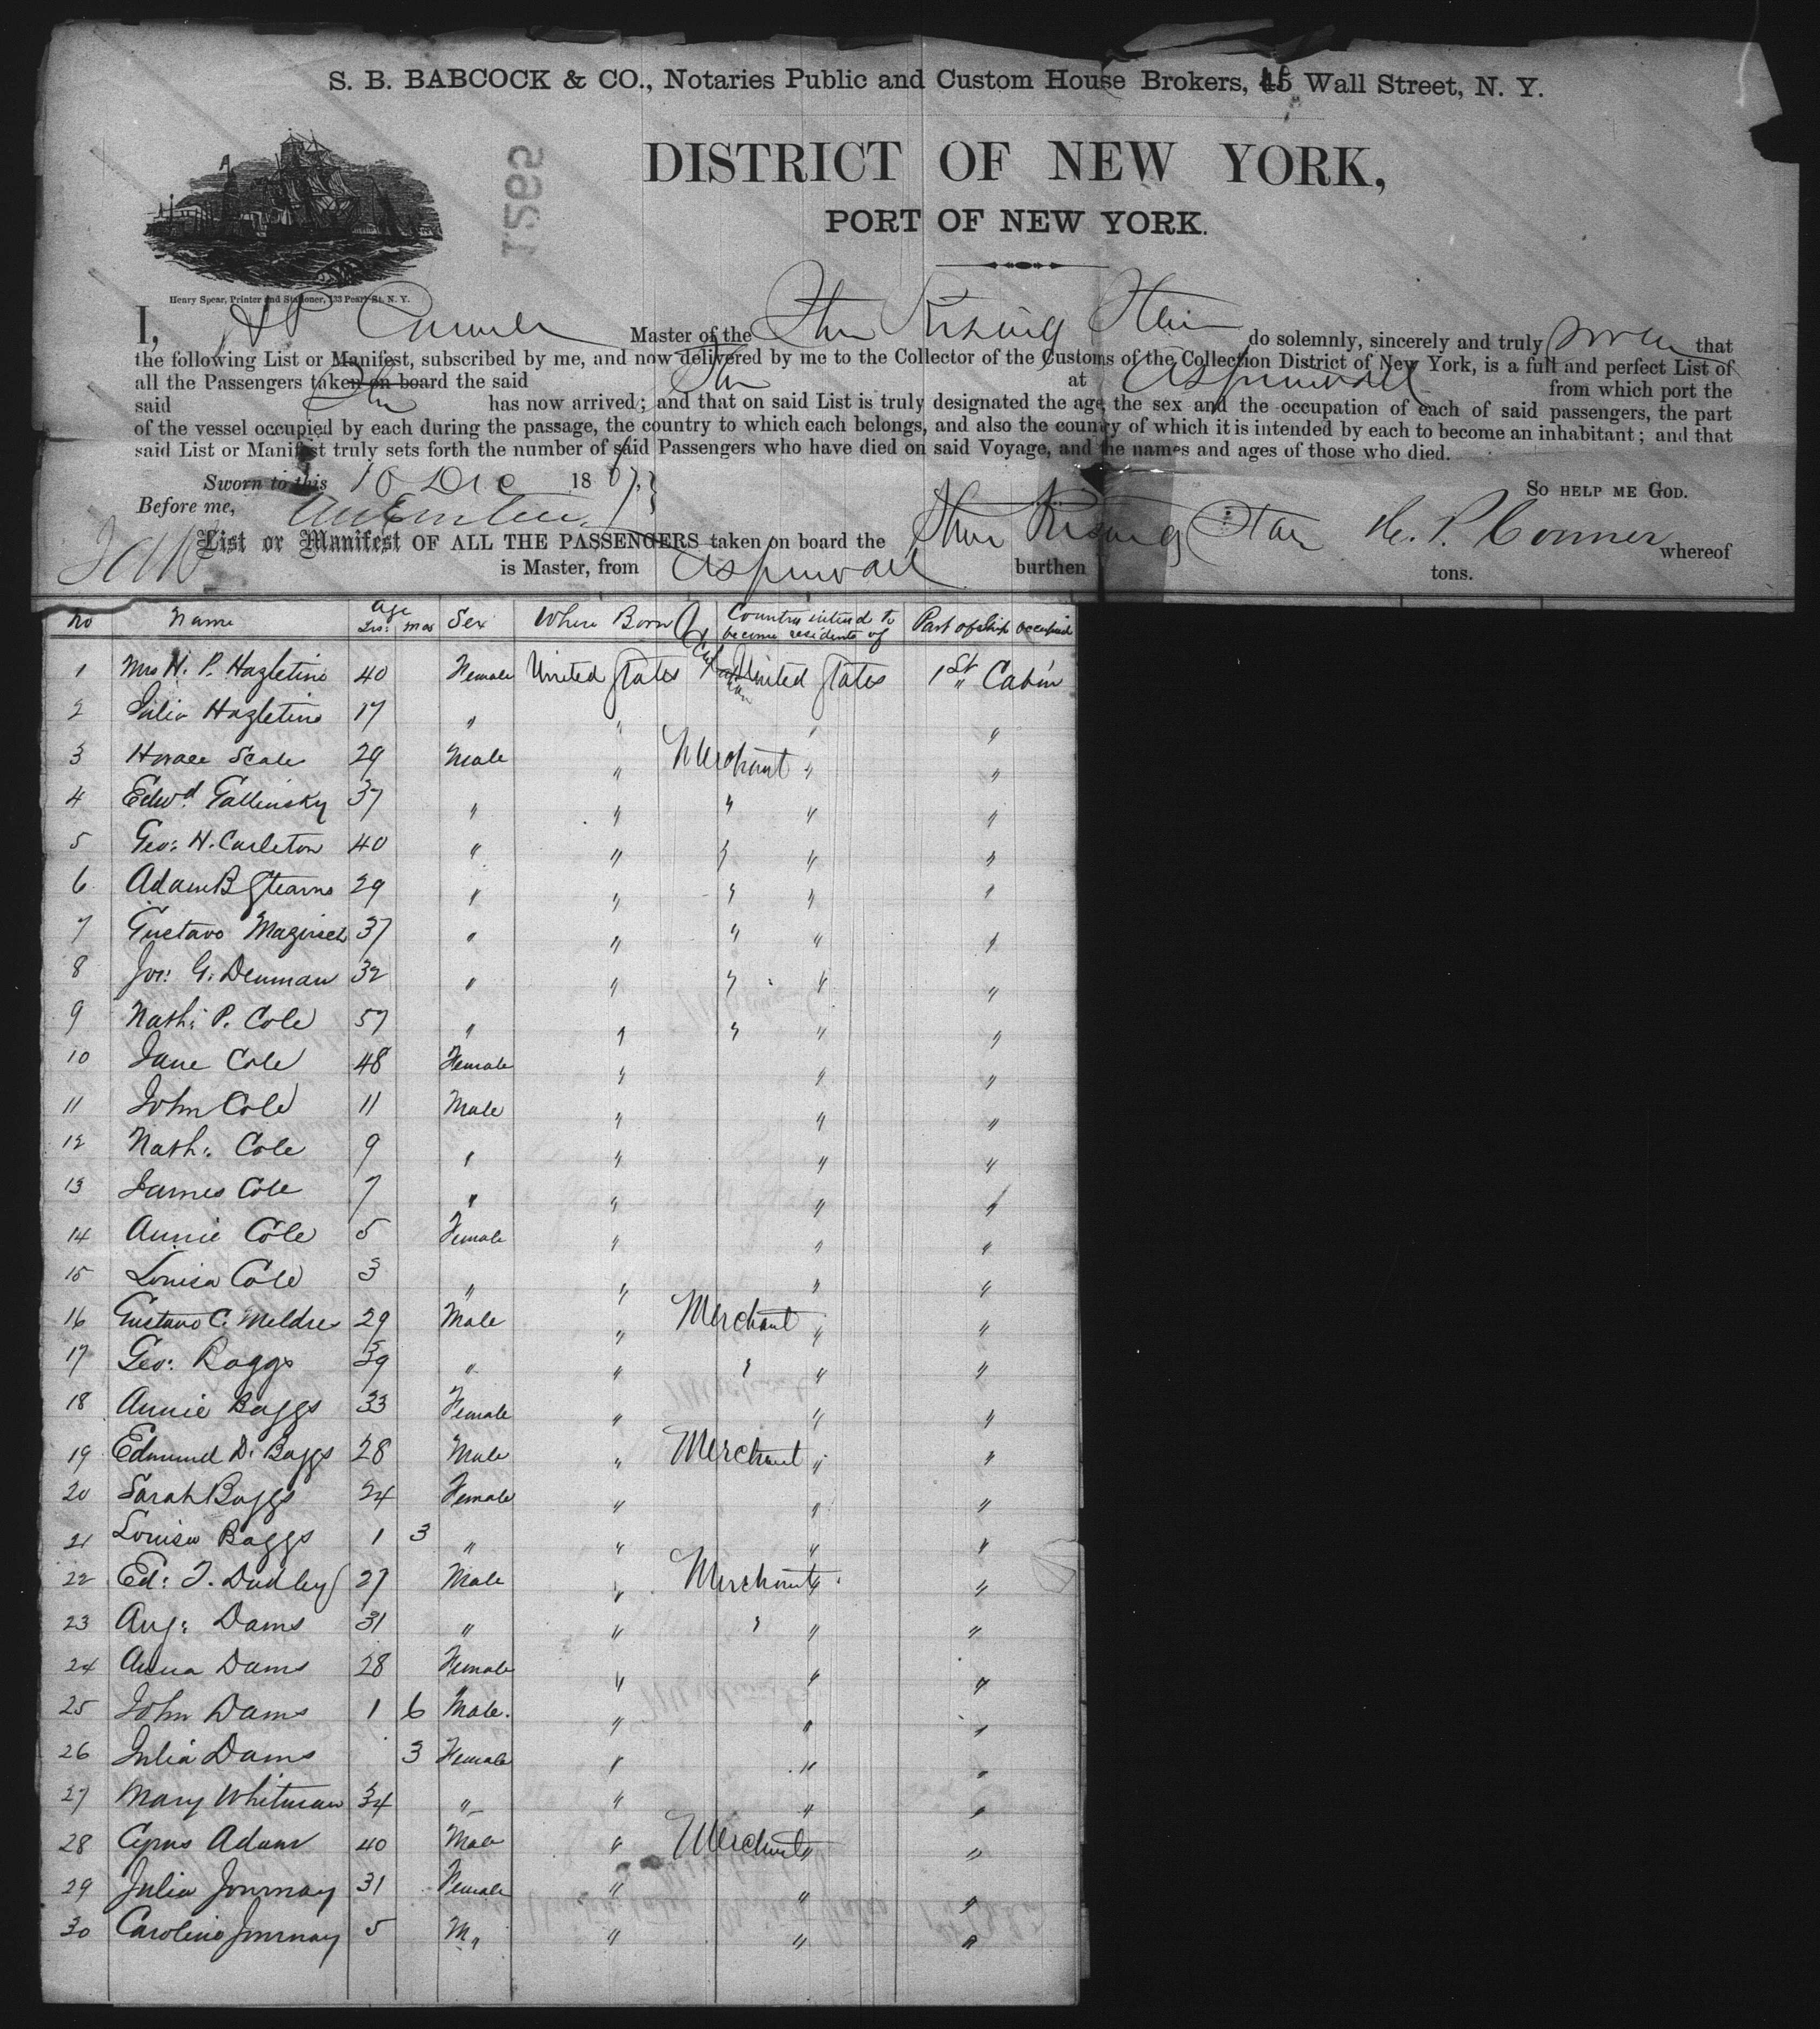 S. B. BABCOCK & CO., Notaries Public and Custom House Brokers, 45 Wall Street, N. Y.
1265
DISTRICT OF NEW YORK,
PORT OF NEW YORK.
Henry Spear, Printer and Stationer, 133 Pearl St. N. Y.
I, H P Conner Master of the Stmr Rising Star do solemnly, sincerely and truly swear that
the following List or Manifest, subscribed by me, and now delivered by me to the Collector of the Customs of the Collection District of New York, is a full and perfect List of
all the Passengers taken on board the said Stmr at Aspinwall from which port the
said Stmr has now arrived; and that on said List is truly designated the age, the sex and the occupation of each of said passengers, the part
of the vessel occupied by each during the passage, the country to which each belongs, and also the country of which it is intended by each to become an inhabitant; and that
said List or Manifest truly sets forth the number of said Passengers who have died on said Voyage, and the names and ages of those who died.
Sworn to this 10 Dec 1867, SO HELP ME GOD.
Before me,
List or Manifest OF ALL THE PASSENGERS taken on board the Stmr Rising Star H. P. Conner whereof
is Master, from Aspinwall burthen tons.
No Name Age Yrs: mos Sex Where Born Country intend to become residents of Part of Ship occupied
1 Mrs H. P. Hazletine 40 Female United States United States 1st Cabin
2 Julia Hazletine 17 " " " "
3 Horace Seale 29 Male " Merchant " "
4 Edwd. Gallinsky 37 " " " " "
5 Geo: H. Carleton 40 " " " " "
6 Adam B Stearns 29 " " " " "
7 Gustavo 37 " " " " "
8 Jos: G. Denman 32 " " " " "
9 Nath: P. Cole 57 " " " " "
10 Jane Cole 48 Female " " "
11 John Cole 11 Male " " "
12 Nath: Cole 9 " " " "
13 James Cole 7 " " " "
14 Annie Cole 5 Female " " "
15 Louisa Cole 3 " " " "
16 Gustavo C. Meldre 29 Male " Merchant " "
17 Geo: Baggs 39 " " " " "
18 Annie Baggs 33 Female " " "
19 Edmund D. Baggs 28 Male " Merchant " "
20 Sarah Baggs 24 Female " " "
21 Louisa Baggs 1 3 " " " "
22 Ed: T. Dudley 27 Male " Merchant " "
23 Aug: Dams 31 " " " " "
24 Anna Dams 28 Female " " "
25 John Dams 1 6 Male. " " "
26 Julia Dams 3 Female " " "
27 Mary Whitman 34 " " " "
28 Cyrus Adams 40 Male " Merchant " "
29 Julia Journay 31 Female " " "
30 Caroline Journay 5 M " " " "